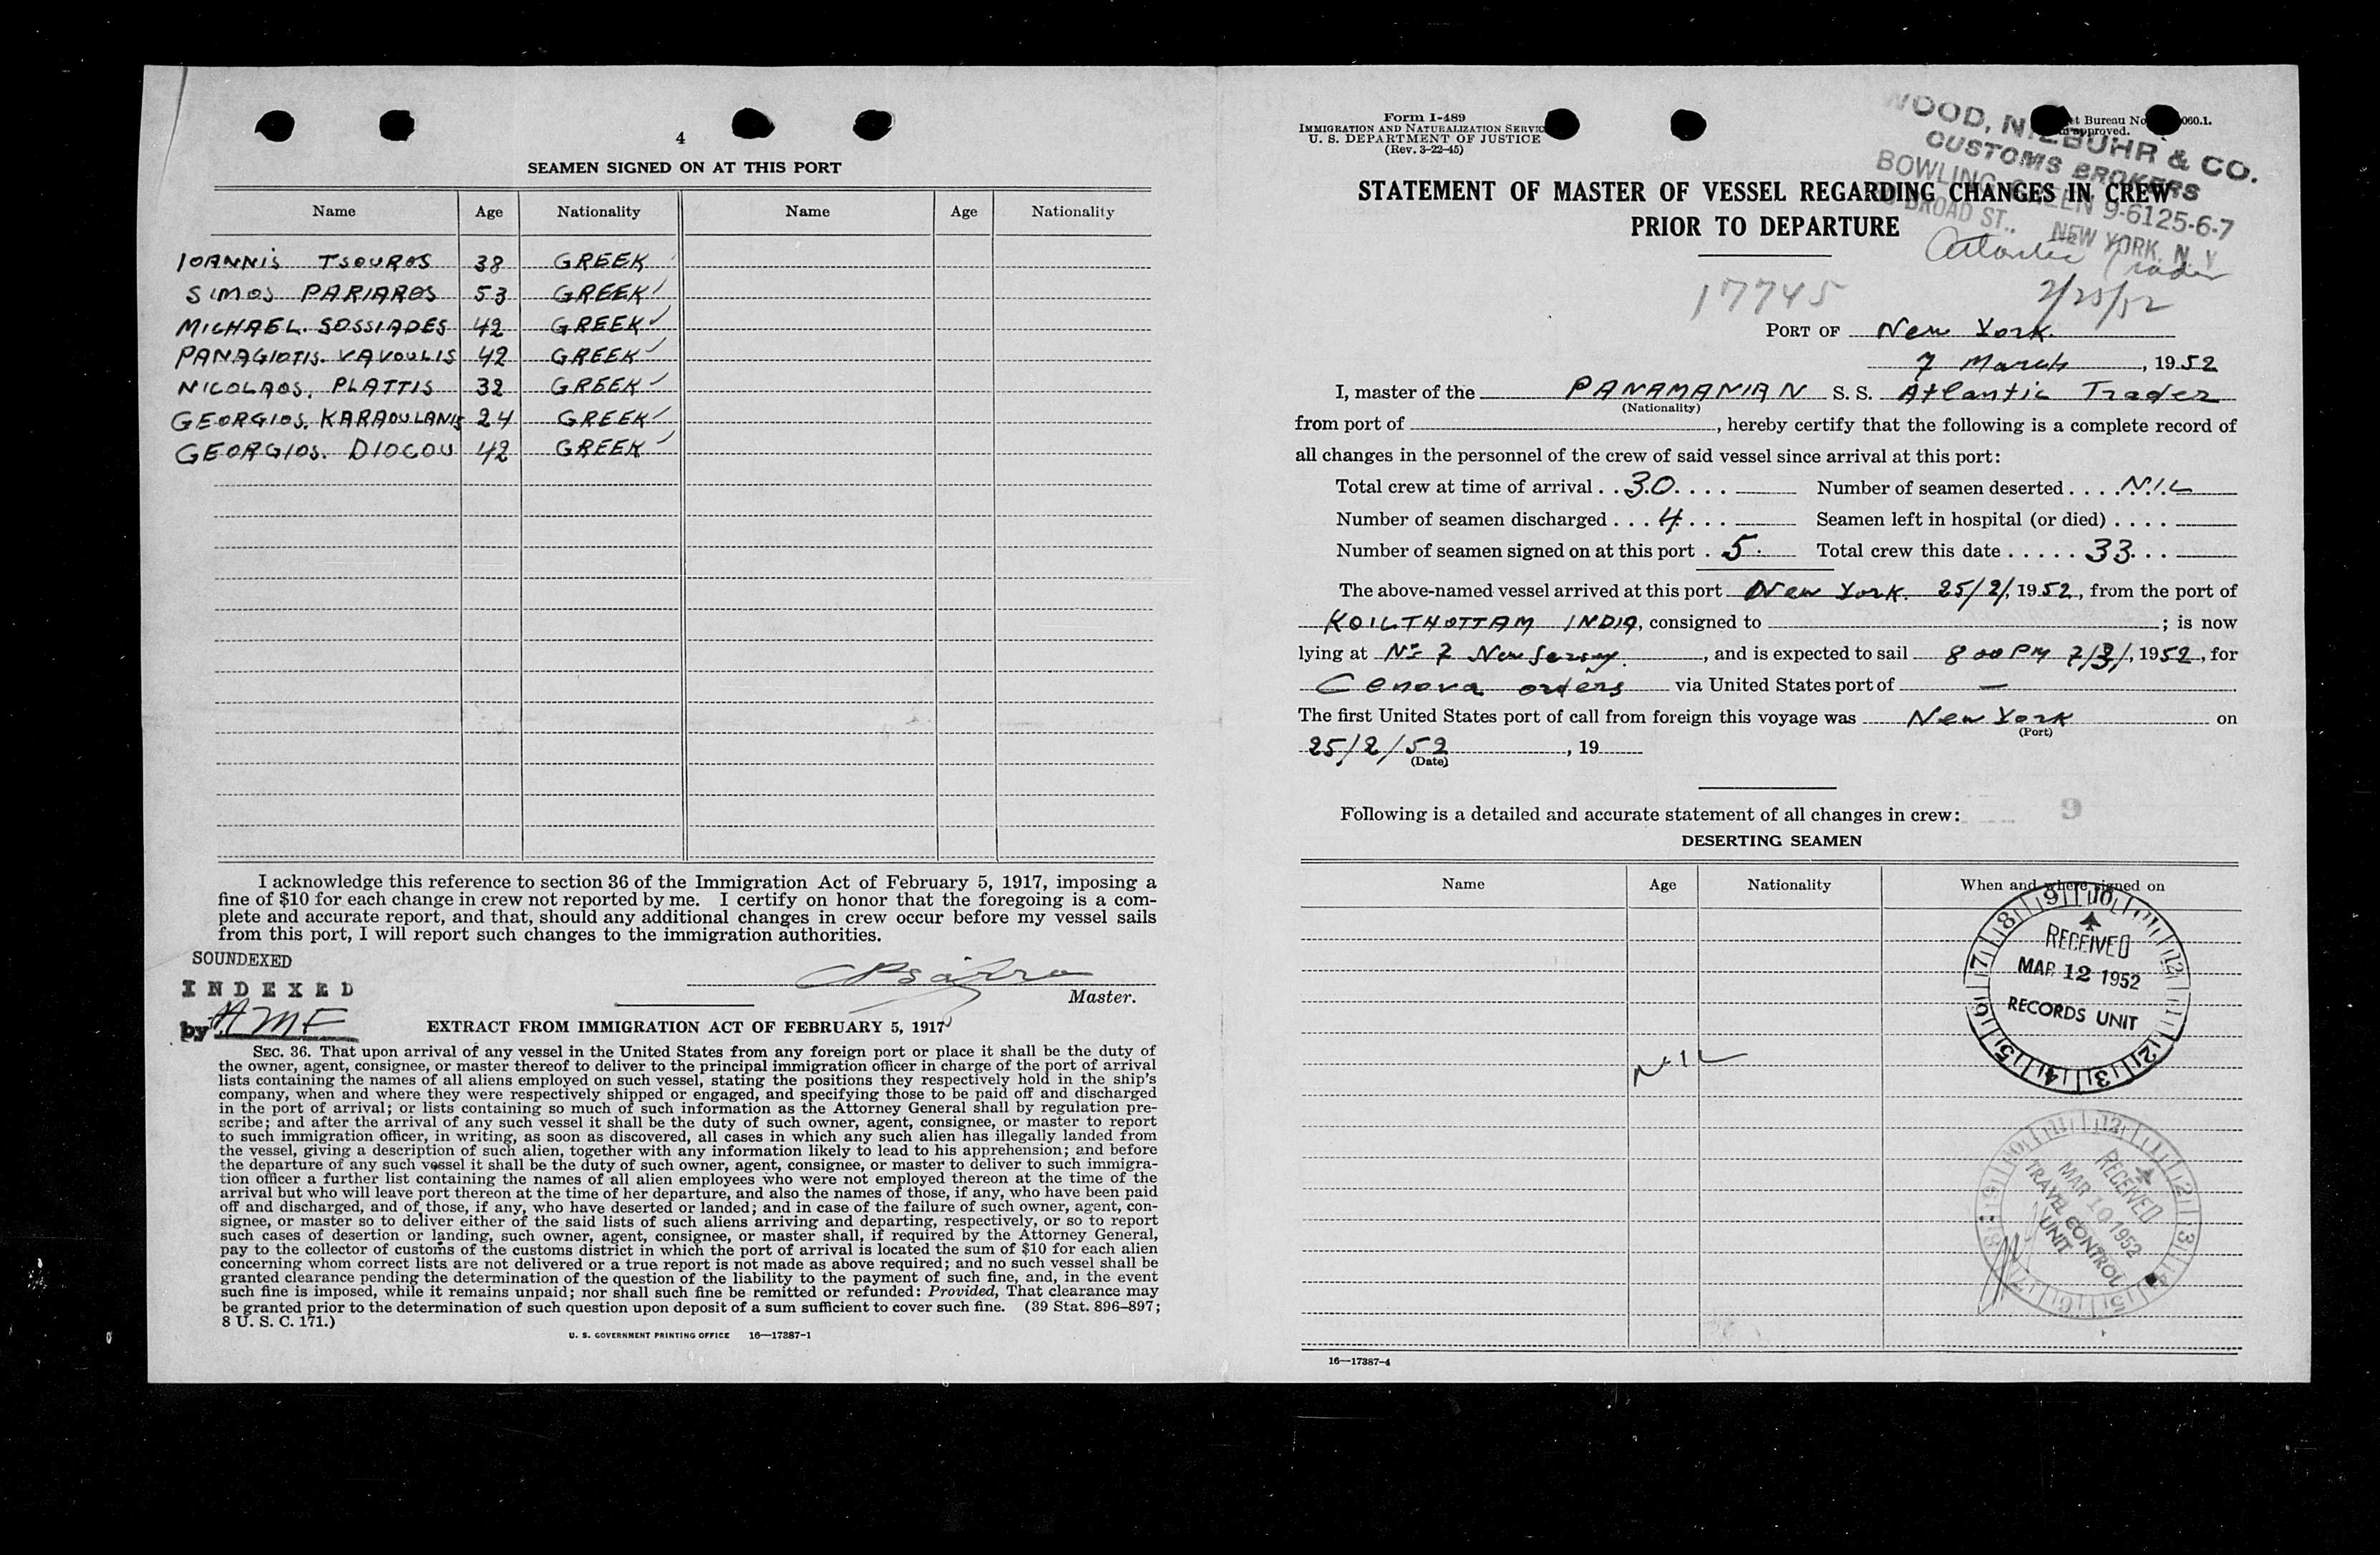 4
SEAMEN SIGNED ON AT THIS PORT
Name Age Nationality Name Age Nationality
IOANNIS TSOUROS 38 GREEK
SIMOS PARIAROS 53 GREEK
MICHAEL. SOSSIADES 42 GREEK
PANAGIOTIS. VAVOULIS 42 GREEK
NICOLAOS. PLATTIS 32 GREEK
GEORGIOS. KARAOULANIS 24 GREEK
GEORGIOS. DIOGOU 42 GREEK
I acknowledge this reference to section 36 of the Immigration Act of February 5, 1917, imposing a
fine of $10 for each change in crew not reported by me. I certify on honor that the foregoing is a com-
plete and accurate report, and that, should any additional changes in crew occur before my vessel sails
from this port, I will report such changes to the immigration authorities.
SOUNDEXED
INDEXED
Master.
by AMF
EXTRACT FROM IMMIGRATION ACT OF FEBRUARY 5, 1917
SEC. 36. That upon arrival of any vessel in the United States from any foreign port or place it shall be the duty of
the owner, agent, consignee, or master thereof to deliver to the principal immigration officer in charge of the port of arrival
lists containing the names of all aliens employed on such vessel, stating the positions they respectively hold in the ship's
company, when and where they were respectively shipped or engaged, and specifying those to be paid off and discharged
in the port of arrival; or lists containing so much of such information as the Attorney General shall by regulation pre-
scribe; and after the arrival of any such vessel it shall be the duty of such owner, agent, consignee, or master to report
to such immigration officer, in writing, as soon as discovered, all cases in which any such alien has illegally landed from
the vessel, giving a description of such alien, together with any information likely to lead to his apprehension; and before
the departure of any such vessel it shall be the duty of such owner, agent, consignee, or master to deliver to such immigra-
tion officer a further list containing the names of all alien employees who were not employed thereon at the time of the
arrival but who will leave port thereon at the time of her departure, and also the names of those, if any, who have been paid
off and discharged, and of those, if any, who have deserted or landed; and in case of the failure of such owner, agent, con-
signee, or master so to deliver either of the said lists of such aliens arriving and departing, respectively, or so to report
such cases of desertion or landing, such owner, agent, consignee, or master shall, if required by the Attorney General,
pay to the collector of customs of the customs district in which the port of arrival is located the sum of $10 for each alien
concerning whom correct lists are not delivered or a true report is not made as above required; and no such vessel shall be
granted clearance pending the determination of the question of the liability to the payment of such fine, and, in the event
such fine is imposed, while it remains unpaid; nor shall such fine be remitted or refunded: Provided, That clearance may
be granted prior to the determination of such question upon deposit of a sum sufficient to cover such fine. (39 Stat. 896-897;
8 U. S. C. 171.)
U. S. GOVERNMENT PRINTING OFFICE 16—17387-1
Form I-489
IMMIGRATION AND NATURALIZATION SERVIC
U. S. DEPARTMENT OF JUSTICE
(Rev. 3-22-45)
et Bureau No. 060.1.
approved.
WOOD, NIEBUHR & CO.
CUSTOMS BROKERS
BOWLING GREEN 9-6125-6-7
BROAD ST., NEW YORK, N. Y
STATEMENT OF MASTER OF VESSEL REGARDING CHANGES IN CREW
PRIOR TO DEPARTURE
Atlantic Trader
17745
2/25/52
PORT OF New York.
7 March, 1952
I, master of the PANAMANIAN S. S. Atlantic Trader
(Nationality)
from port of , hereby certify that the following is a complete record of
all changes in the personnel of the crew of said vessel since arrival at this port:
Total crew at time of arrival . . 30 . . . . Number of seamen deserted . . . . NIL
Number of seamen discharged . . . 4 . . . Seamen left in hospital (or died) . . . .
Number of seamen signed on at this port . 5 . Total crew this date . . . . . 33 . . .
The above-named vessel arrived at this port New York. 25/2/, 1952, from the port of
KOILTHOTTAM INDIA, consigned to ; is now
lying at No 7 New Jersey., and is expected to sail 8 00 PM 7/3/, 1952, for
Genova orders via United States port of —
The first United States port of call from foreign this voyage was New York on
(Port)
25/2/52, 19
(Date)
Following is a detailed and accurate statement of all changes in crew: 9
DESERTING SEAMEN
Name Age Nationality When and where signed on
RECEIVED
MAR 12 1952
RECORDS UNIT
NIL
RECEIVED
MAR 10 1952
TRAVEL CONTROL
UNIT
16—17387-4